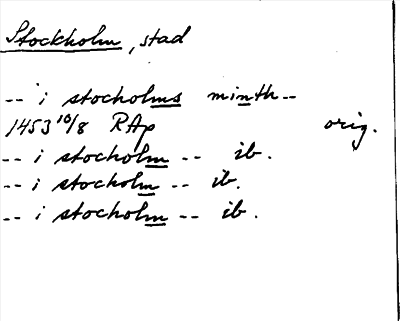 Stockholm, stad
-- i stocholms minth --
1453 10/8 RAp orig.
-- i stocholm -- ib.
-- i stocholm -- ib.
-- i stocholm -- ib.